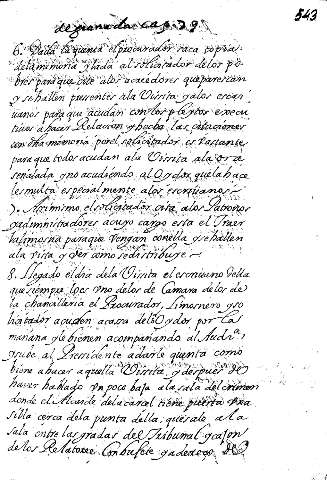 de granada Cap. 39.
543
6. Dada la quenta el procurador saca copia
de la minoria y la da al solicitador de los po
bres para que cite a los acrehedores que parescan
y se hallen presentes a la Visita y a los escri
uanos para que acudan con los pleytos execu
tiuos a hacer Relacion y hechas las citaciones
con una memoria por el solicitador es bastante
para que todos acudan a la Visita a la ora
senalada y no acudiendo al Oydor que la hace
les multa especialmente a los escriuanos
7. Assimismo el solicitador cita a los Patronos
y administradores a cuyo cargo esta el Traer
la limosna para que vengan con ella y se hallen
a la vista y ver como se distribuye
8. Llegado el dia de la Visita el escriuano della
que siempre lo es uno de los de Camara de los de
la chancilleria el Procurador, Limosnero y so
licitador acuden a casa del Oydor por la
manana y le vienen acompañando al Audia.
y sube al Presidente a darle quenta como
viene a hacer aquella Visita, y despues de
hauer hablado un poco baja a la sala del crimen
donde el Alcaide de la carcel tiene puerta una
silla cerca de la punta della, que sale a la
sala entre las gradas del Tribunal y cajon
de los Relatores con bufete y aderezo